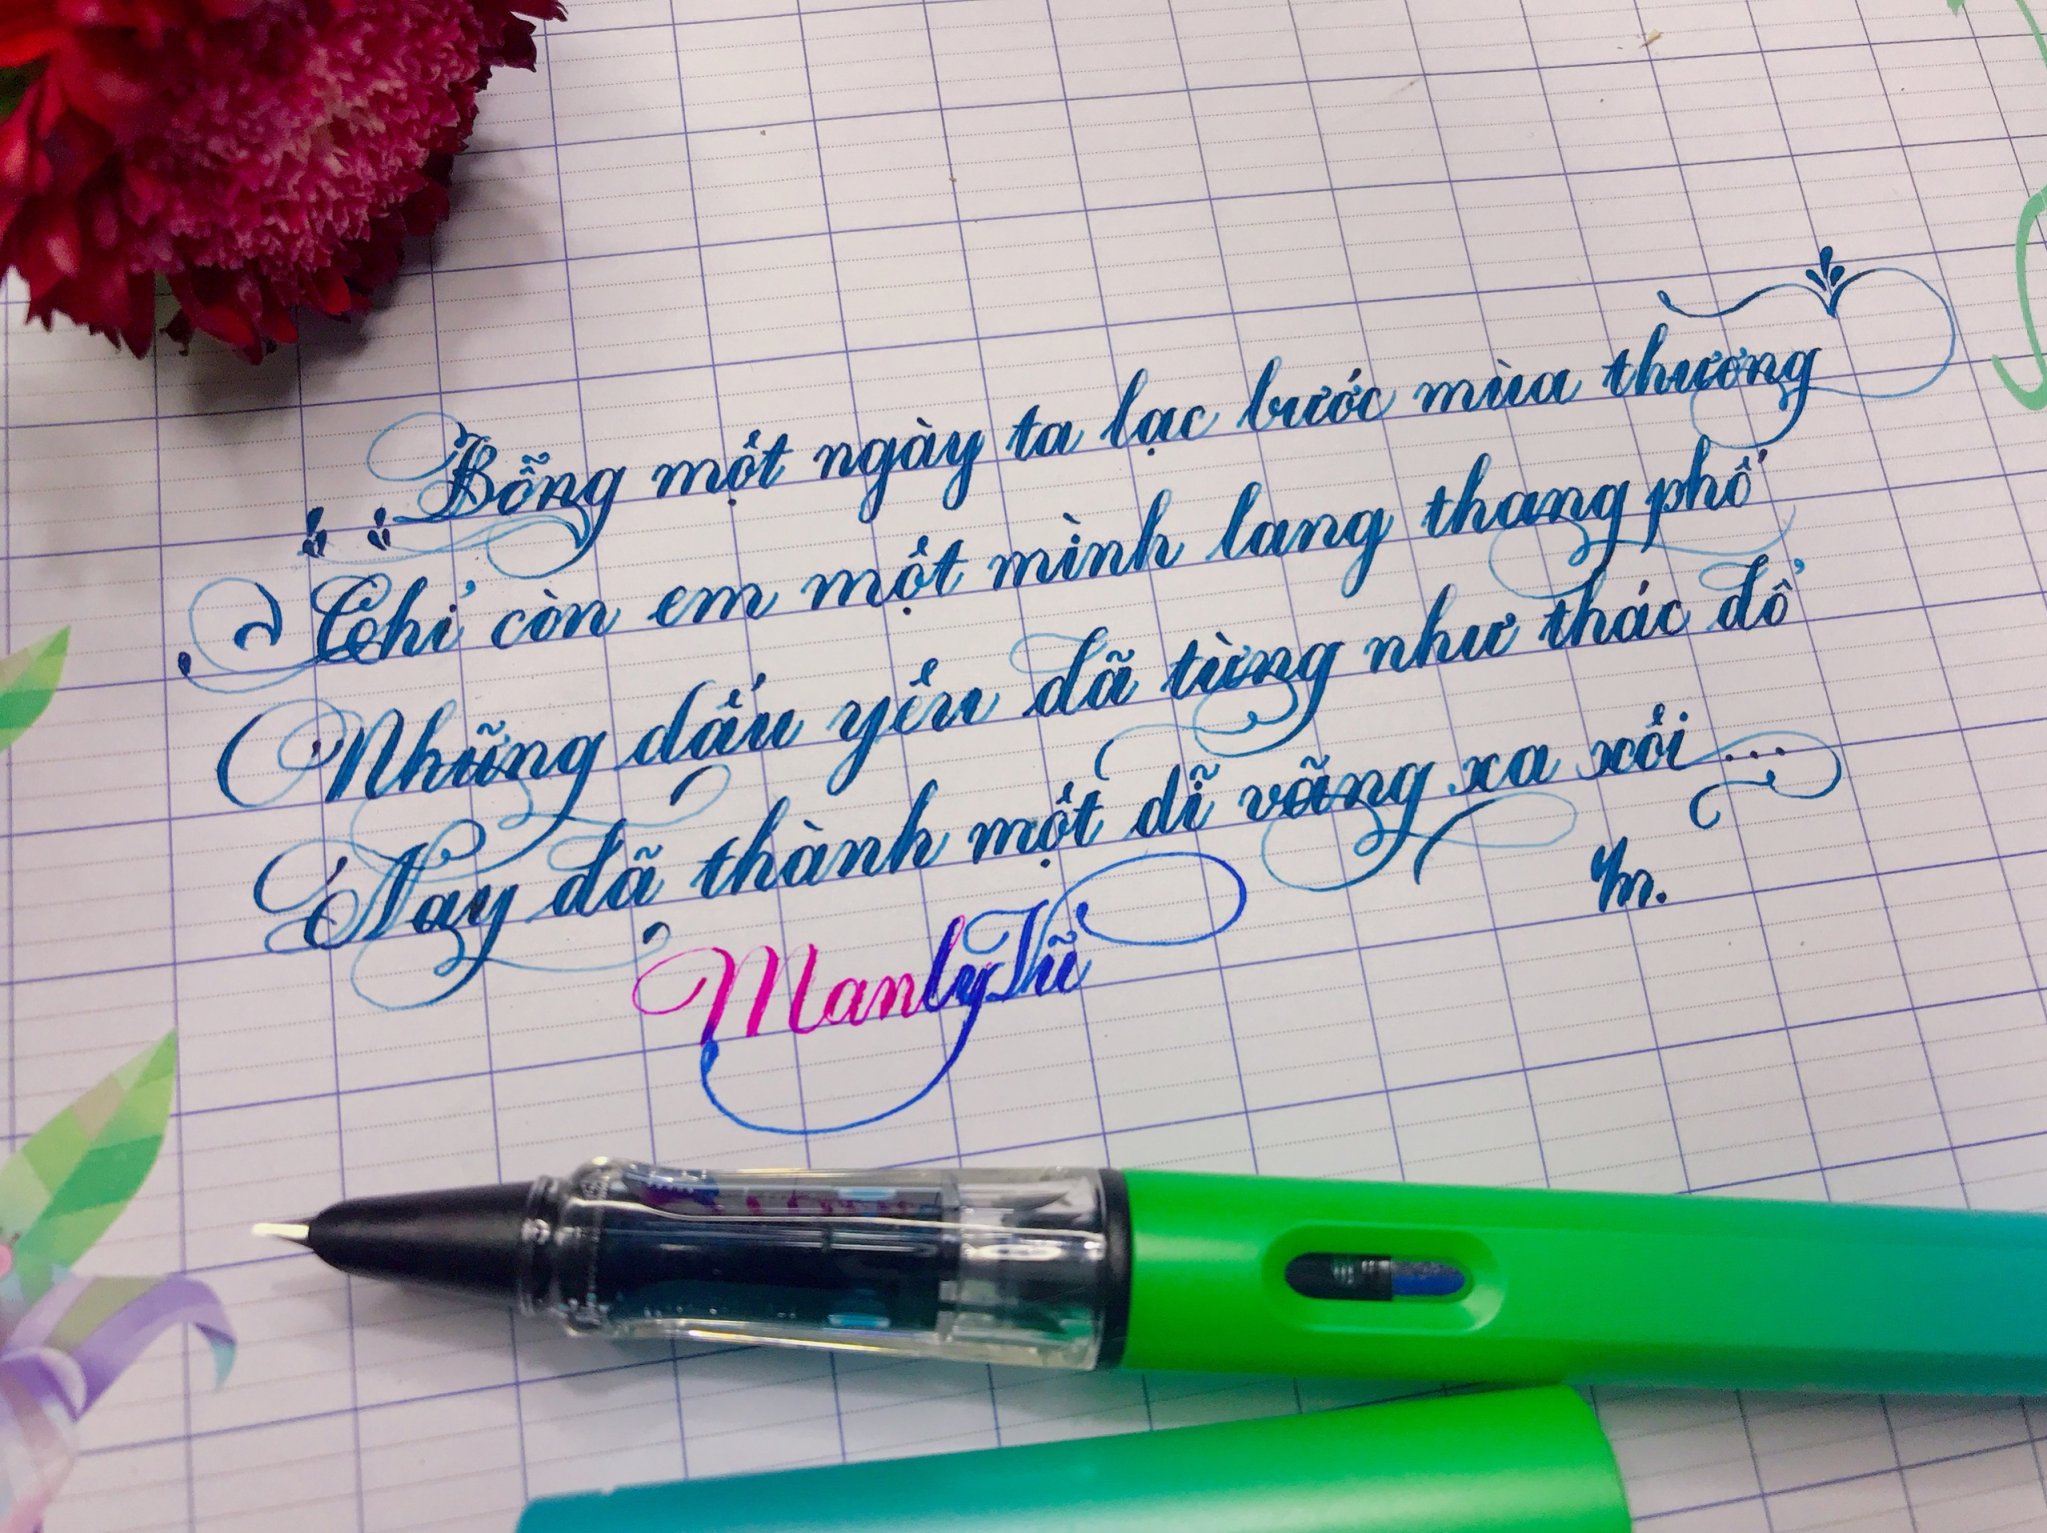 Bỗng một ngày ta lạc bước mùa thương
Chỉ còn em một mình lang thang phố
Những dấu yêu đã từng như thác đổ
Nay đã thành một dĩ vãng xa xôi...
ManlyTũ